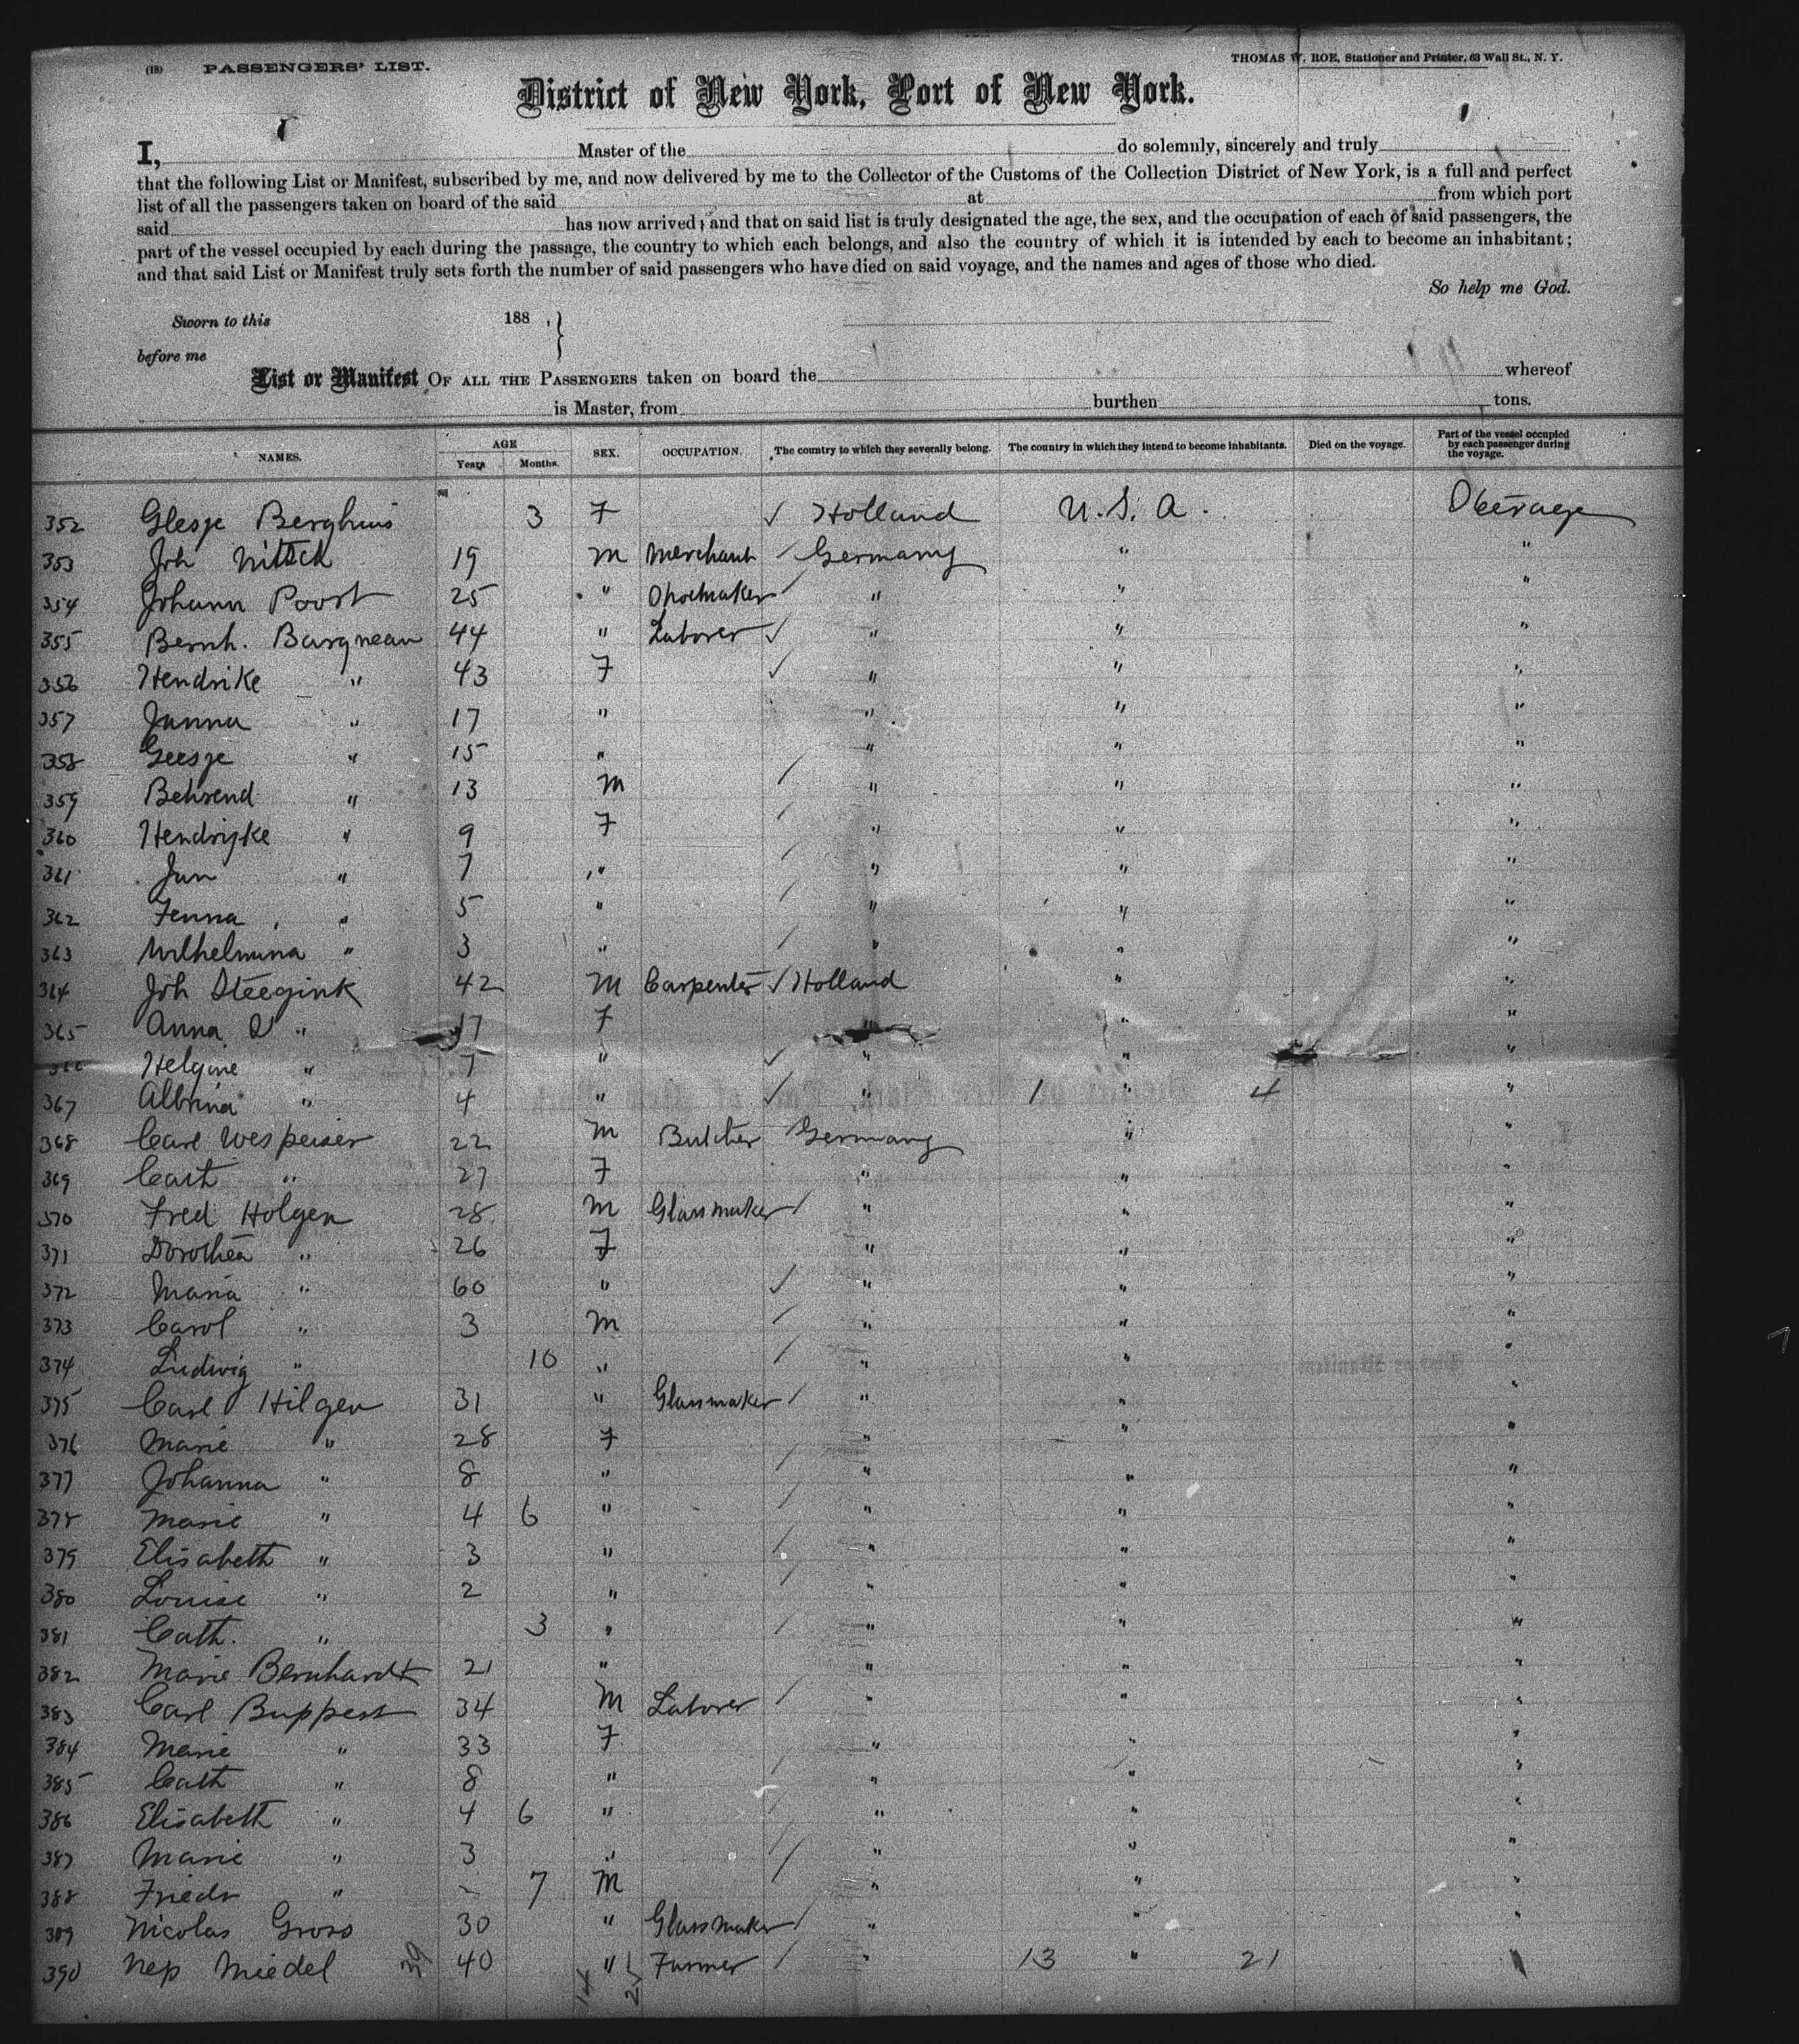 (18) PASSENGERS' LIST.
THOMAS W. ROE, Stationer and Printer, 63 Wall St., N. Y.
District of New York, Port of New York.
I, Master of the do solemnly, sincerely and truly
that the following List or Manifest, subscribed by me, and now delivered by me to the Collector of the Customs of the Collection District of New York, is a full and perfect
list of all the passengers taken on board of the said at from which port
said has now arrived; and that on said list is truly designated the age, the sex, and the occupation of each of said passengers, the
part of the vessel occupied by each during the passage, the country to which each belongs, and also the country of which it is intended by each to become an inhabitant;
and that said List or Manifest truly sets forth the number of said passengers who have died on said voyage, and the names and ages of those who died.
So help me God.
Sworn to this 188 , }
before me
List or Manifest OF ALL THE PASSENGERS taken on board the whereof
is Master, from burthen tons.
NAMES. AGE Years Months. SEX. OCCUPATION. The country to which they severally belong. The country in which they intend to become inhabitants. Died on the voyage. Part of the vessel occupied by each passenger during the voyage.
352 Glesje Berghuis 3 F ✓ Holland U.S.A.
353 Joh Nitsch 19 M Merchant / Germany " "
354 Johann Poort 25 " Shoemaker / " " "
355 Bernh. Bargneau 44 " Laborer ✓ " " "
356 Hendrike " 43 F ✓ " " "
357 Janna " 17 " " " "
358 Geesje " 15 " " " "
359 Behrend " 13 M / " " "
360 Hendrijke " 9 F / " " "
361 Jan " 7 " / " " "
362 Fenna " 5 " / " " "
363 Wilhelmina " 3 " / " " "
364 Joh Steegink 42 M Carpenter ✓ Holland " "
365 Anna " 17 F " " "
366 Helgine " 7 " ✓ " " "
367 Albrina " 4 " ✓ " 1 " 4 "
368 Carl Wespeiser 22 M Butcher Germany " "
369 Cath " 27 F " " "
370 Fred Holgen 28 M Glassmaker / " " "
371 Dorothea " 26 F " " "
372 Maria " 60 " ✓ " " "
373 Carol " 3 M / " " "
374 Ludwig " 10 " / " " "
375 Carl Hilgen 31 " Glassmaker / " " "
376 Marie " 28 F " " "
377 Johanna " 8 " / " " "
378 Marie " 4 6 " / " " "
379 Elisabeth " 3 " / " " "
380 Louise " 2 " / " " "
381 Cath. " 3 " / " " "
382 Marie Bernhardt 21 " " " "
383 Carl Buppert 34 M Laborer / " " "
384 Marie " 33 F " " "
385 Cath " 8 " / " " "
386 Elisabeth " 4 6 " / " " "
387 Marie " 3 " / " " "
388 Friedr " - 7 M " " "
389 Nicolas Gross 30 " Glassmaker / " " "
390 Nep Miedel 39 40 " Farmer / " 13 " 21
14 25